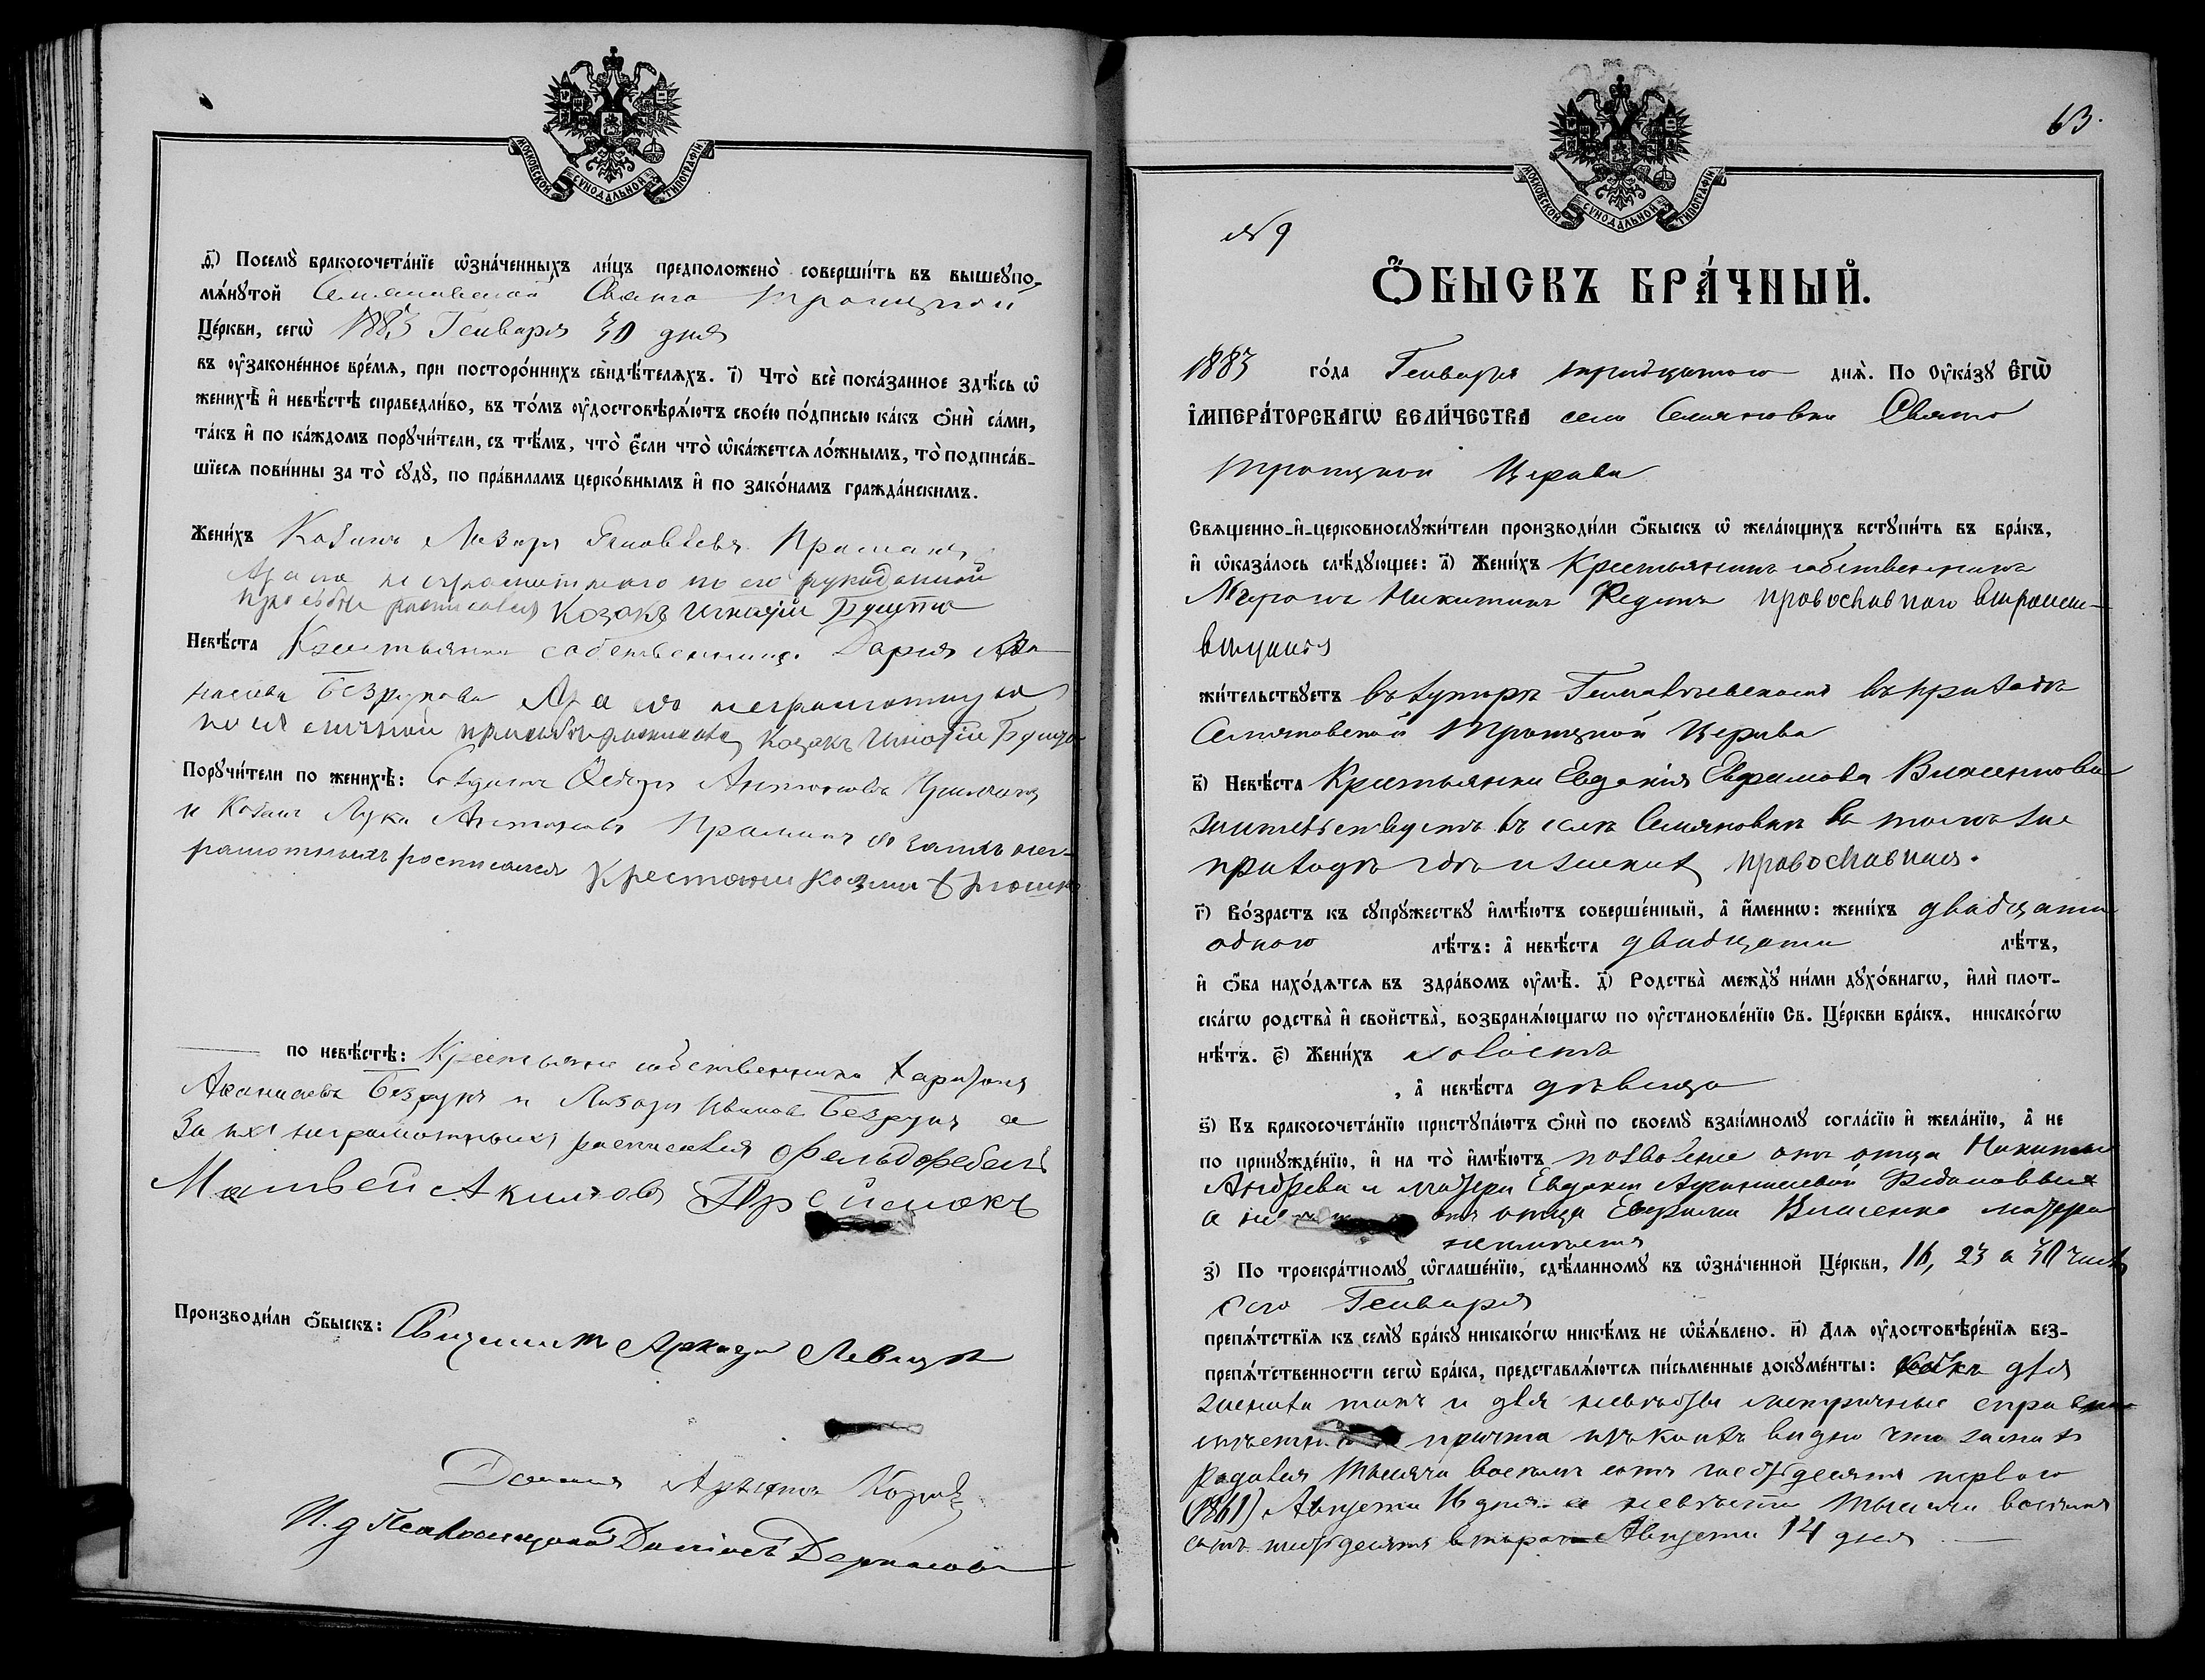 МОСКОВСКОЙ СѴНОДАЛЬНОЙ ТИПОГРАФІИ
д҃) Посемꙋ̀ бракосочета́нїе ѡ҆зна́ченныхъ ли́цъ предположено̀ соверши́ть въ вышеꙋпо-
мѧ́нꙋтой Семяновской Свято Троицкой
Це́ркви, сегѡ̀ 1883 Генваря 30 дня
въ ᲂу҆законе́нное вре́мѧ, при посторо́ннихъ свидѣ́телѧхъ. і҃) Что̀ всѐ пока́занное здѣ́сь ѡ҆
женихѣ̀ и҆ невѣ́стѣ справедли́во, въ то́мъ ᲂу҆достовѣрѧ́ютъ свое́ю по́дписью ка́къ ѻ҆нѝ са́ми,
та́къ и҆ по ка́ждомъ порꙋчи́тели, съ тѣ́мъ, что̀ є҆́сли что̀ ѡ҆ка́жетсѧ ло́жнымъ, то̀ подписа́в-
шїесѧ пови́нны за то̀ сꙋдꙋ̀, по пра́виламъ церко́внымъ и҆ по зако́намъ гражда́нскимъ.
Жени́хъ Козакъ Лазарь Яковлевъ
а за него неграмотнаго по его рукоданной
просьбе росписался Козакъ Игнатій Буцта
Невѣ́ста Крестьянка собственница Дарія Афа-
насіева Безрукова А за ея неграмотную
по ея личной просьбе росписался козакъ Игнатій
Порꙋчи́тели по женихѣ̀: Солдатъ Федоръ Антоновъ
и Козакъ Лука Антоновъ за нихъ нег-
рамотныхъ росписался Крестянин Козма
по невѣ́стѣ: Крестьяне собственники Харитонъ
Афанасіевъ Безрукъ и Лазарь Ивановъ Безрукъ а
За ихъ неграмотныхъ росписался Фельдфебель
Матвей Акимовъ
Производи́ли ѻ҆́быскъ: Священникъ Аркадій Левицкій
И. д Псаломщика Даніилъ
63.
МОСКОВСКОЙ СѴНОДАЛЬНОЙ ТИПОГРАФІИ
№ 9
Ѻ҆́БЫСКЪ БРА́ЧНЫЙ.
1883 го́да Генваря тридцатого днѧ̀. По Оу҆ка́зꙋ ЄГѠ̀
І҆МПЕРА́ТОРСКАГѠ ВЕЛИ́ЧЕСТВА села Семяновки Свято
Троицкой Церкви
Свѧщенно-и҆-церковнослꙋжи́тели производи́ли ѻ҆́быскъ ѡ҆ жела́ющихъ встꙋпи́ть въ бра́къ,
и҆ ѡ҆каза́лось слѣ́дꙋющее: а҃) Жени́хъ Крестьянинъ собственникъ
Миронъ Никитинъ Федянъ православного вироиспо-
ведания
жи́тельствꙋетъ въ хуторе въ приходе
Семяновской Троицкой Церкви
в҃) Невѣ́ста Крестьянка Евдокія Ефимова Власенкова
жительствуетъ въ селе Семяновке въ томъ же
приходе где и жених православная.
г҃) Во́зрастъ къ сꙋпрꙋ́жествꙋ и҆мѣ́ютъ соверше́нный, а҆ и҆́меннѡ: жени́хъ двадцати
одного лѣ́тъ: а҆ невѣ́ста двадцати лѣ́тъ,
и҆ ѻ҆́ба нахо́дѧтсѧ въ здра́вомъ ᲂу҆мѣ̀. д҃) Родства̀ междꙋ̀ ни́ми дꙋхо́внагѡ, и҆лѝ плот-
ска́гѡ родства̀ и҆ свойства̀, возбранѧ́ющагѡ по ᲂу҆становле́нїю Св. Це́ркви бра́къ, никако́гѡ
нѣ́тъ. є҃) Жени́хъ холостъ
, а҆ невѣ́ста дѣвица
ѕ҃) Къ бракосочета́нїю пристꙋпа́ютъ ѻ҆нѝ по своемꙋ̀ взаи́мномꙋ согла́сїю и҆ жела́нїю, а҆ не
по принꙋжде́нїю, и҆ на то̀ и҆мѣ́ютъ позволение отъ отца Никиты
Андреева и матери Евдокіи Афанасіевой
а не отъ отца Ефима Власенка матери
неимеетъ
з҃) По троекра́тномꙋ ѡ҆глаше́нїю, сдѣ́ланномꙋ въ ѡ҆зна́ченной Це́ркви, 16, 23 и 30 числ
сего Генваря
препѧ́тствїѧ къ семꙋ̀ бра́кꙋ никако́гѡ никѣ́мъ не ѡ҆б̾ѧ́влено. и҃) Длѧ ᲂу҆достовѣре́нїѧ без-
препѧ́тственности сегѡ̀ бра́ка, представлѧ́ютсѧ пи́сьменные докꙋме́нты: какъ для
жениха такъ и для невесты метричные справки
причта изъ коихъ видно что жених
родился тысяча восемь сотъ шестдесятъ первого
(1861) Августа 16 дня а невеста тысяча восемь
сотъ шестдесятъ втораго Августа 14 дня